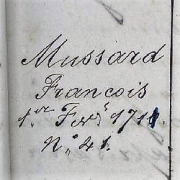 Mussard
François
1.er Fev.r 1718.
N.° 41.